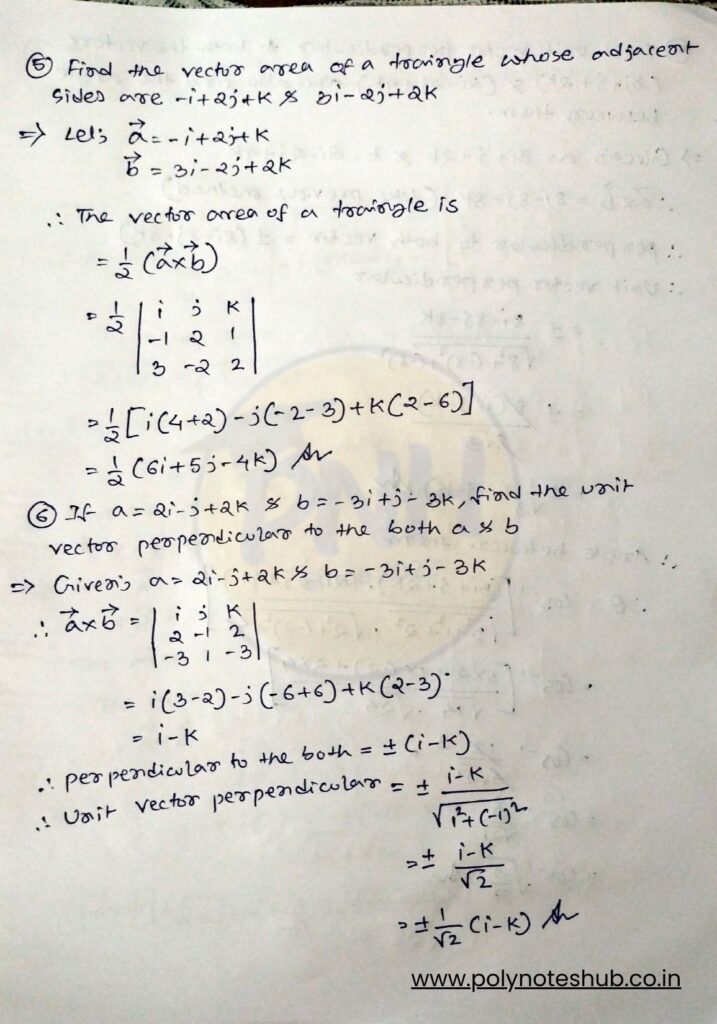 ⑤ Find the vector area of a trainngle whose adjacent
sides are -i+2j+k & 3i-2j+2k
=> Let; a⃗ = -i+2j+k
b⃗ = 3i-2j+2k
∴ The vector area of a trainngle is
= 1/2 (a⃗×b⃗)
= 1/2 | i j k |
| -1 2 1 |
| 3 -2 2 |
= 1/2 [i(4+2)-j(-2-3)+k(2-6)]
= 1/2 (6i+5j-4k) Ar
⑥ If a = 2i-j+2k & b = -3i+j-3k, find the unit
vector perpendicular to the both a & b
=> Given; a = 2i-j+2k & b = -3i+j-3k
∴ a⃗×b⃗ = | i j k |
| 2 -1 2 |
| -3 1 -3 |
= i(3-2)-j(-6+6)+k(2-3)
= i-k
∴ perpendicular to the both = ±(i-k)
∴ Unit vector perpendicular = ± (i-k)/√(1²+(-1)²)
= ± (i-k)/√2
= ± 1/√2 (i-k) Ar
www.polynoteshub.co.in